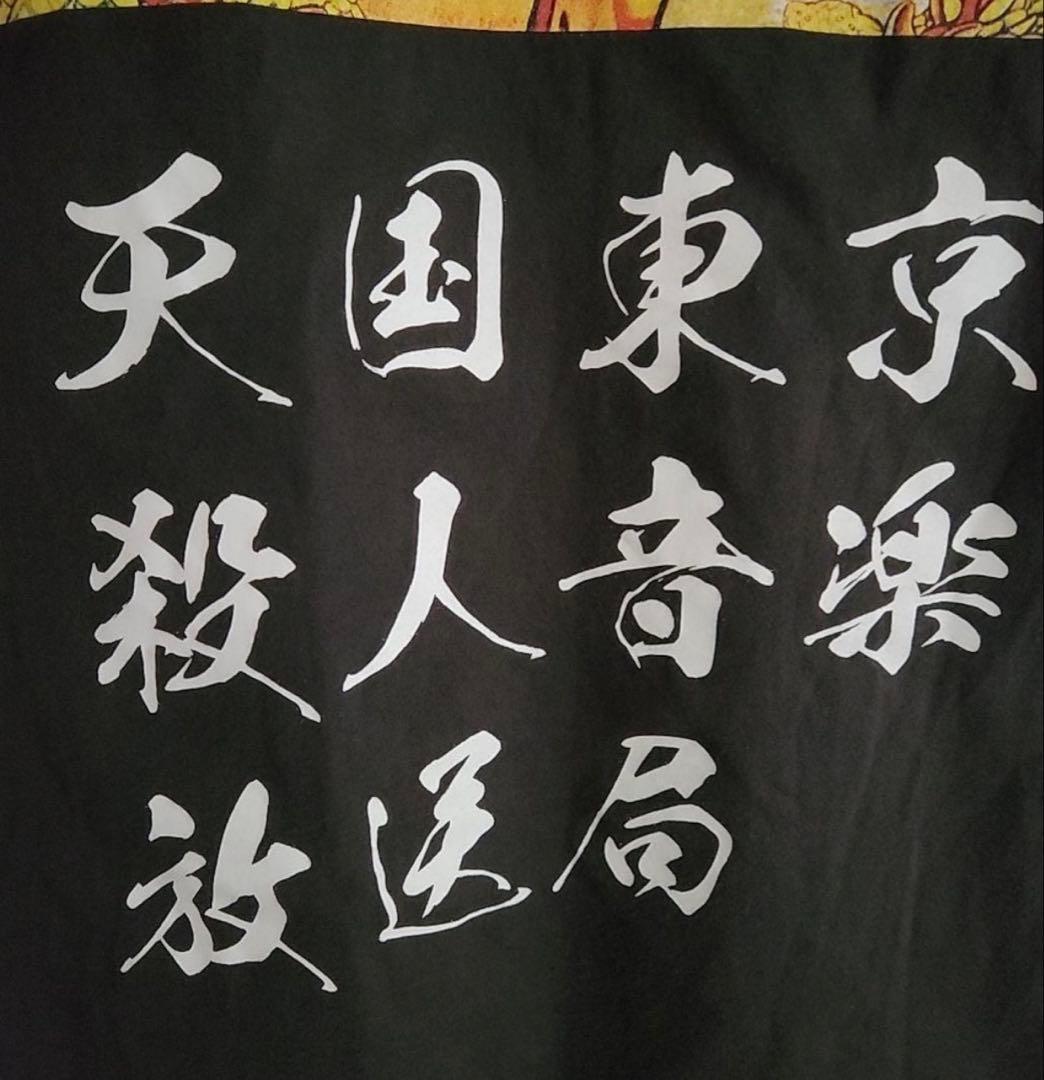 天国東京
殺人音楽
放送局